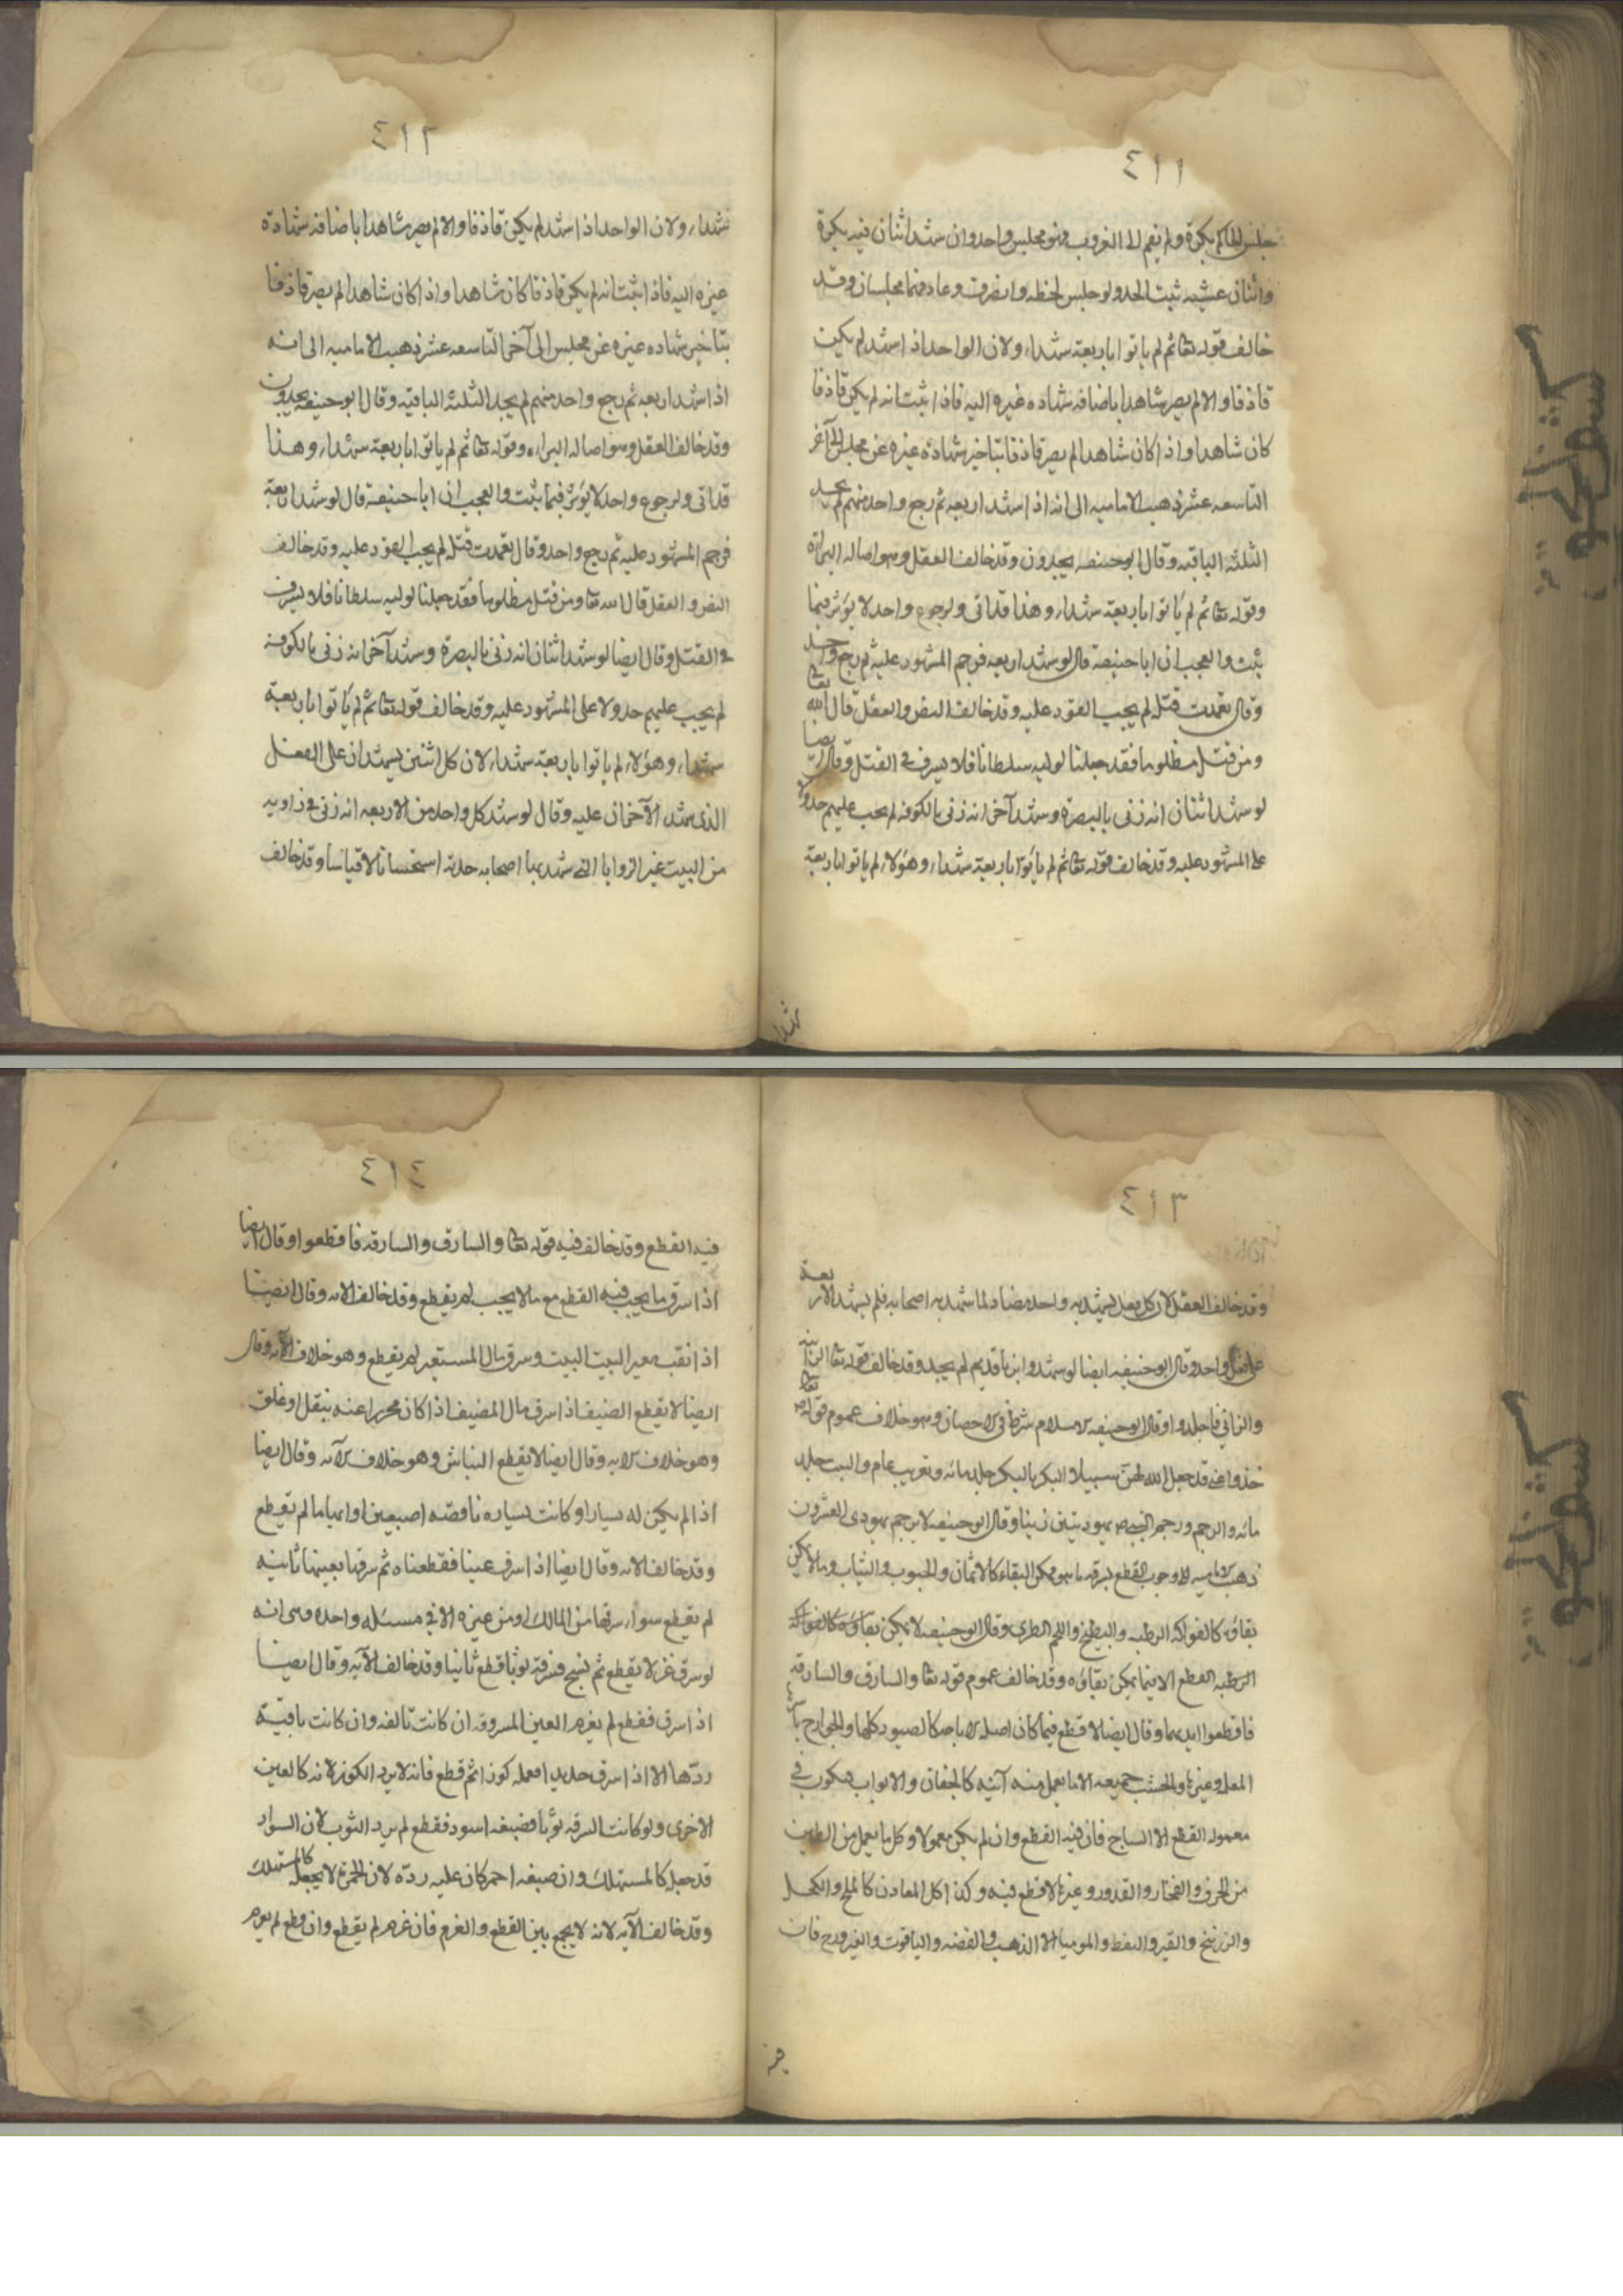 ٤١١
جلس الحاكم بكرة ولم يقم الى الغروب فهو مجلس واحد وان شهد اثنان فيه بكرة
واثنان عشيه ثبت الحد ولو جلس لحظه وانصرف وعاد فهما مجلسان وقد
خالف قوله تعا ثم لم ياتوا باربعة شهداء ولان الواحد اذا شهد لم يكن
قاذفا والا لم يصر شاهدا باضافه شهاده غيره اليه فاذا ثبت انه لم يكن قاذفا
كان شاهدا واذا كان شاهدا لم يصر قاذفا بتاخير شهادة غيره عن مجلس الى آخر
التاسعه عشر ذهب الاماميه الى انه اذا شهد اربعه ثم رجع واحد منهم لم يحد
الثلثه الباقيه وقال ابو حنيفه يحدون وقد خالف العقل وهو اصاله البراءة
وقوله تعا ثم لم ياتوا باربعة شهداء وهذا قد اتى ولرجوع واحد لا يؤثر فيما
ثبت والعجب ان ابا حنيفة قال لو شهد اربعه فرجم المشهود عليه ثم رجع واحد
وقال تعمدت قتله لم يجب القود عليه وقد خالف النص والعقل قال الله تعا
ومن قتل مظلوما فقد جعلنا لوليه سلطانا فلا يسرف في القتل وقال ايضا
لو شهد اثنان انه زنى بالبصرة وشهد آخر انه زنى بالكوفه لم يجب عليهم حد ولا
على المشهود عليه وقد خالف قوله تعا ثم لم ياتوا باربعة شهداء وهؤلاء لم ياتوا باربعة
شهداء
٤١٢
شهداء ولان الواحد اذا شهد لم يكن قاذفا والا لم يصر شاهدا باضافه شهادة
غيره اليه فاذا ثبت انه لم يكن قاذفا كان شاهدا واذا كان شاهدا لم يصر قاذفا
بتاخير شهاده غيره عن مجلس الى آخر التاسعه عشر ذهب الاماميه الى انه
اذا شهد اربعه ثم رجع واحد منهم لم يحد الثلثه الباقيه وقال ابو حنيفه يحدون
وقد خالف العقل وهو اصاله البراءه وقوله تعا ثم لم ياتوا باربعة شهداء وهذا
قد اتى ولرجوع واحد لا يؤثر فيما ثبت والعجب ان ابا حنيفة قال لو شهد اربعة
فرجم المشهود عليه ثم رجع واحد وقال تعمدت قتله لم يجب القود عليه وقد خالف
النص والعقل قال الله تعا ومن قتل مظلوما فقد جعلنا لوليه سلطانا فلا يسرف
في القتل وقال ايضا لو شهد اثنان انه زنى بالبصرة وشهد آخر انه زنى بالكوفه
لم يجب عليهم حد ولا على المشهود عليه وقد خالف قوله تعا ثم لم ياتوا باربعة
شهداء وهؤلاء لم ياتوا باربعة شهداء لان كل اثنين يشهدان على الفعل
الذى شهد الآخران عليه وقال لو شهد كل واحد من الاربعه انه زنى في زاويه
من البيت غير الزوايا التي شهد بها اصحابه حد به استحسانا لا قياسا وقد خالف
٤١٣
وقد خالف العقل لان كل فعل يشهد به واحد مضاد لما شهد به اصحابه فلم يشهد الاربعة
على فعل واحد وقال ابو حنيفه ايضا لو شهدوا بزنا قديم لم يحد وقد خالف قوله تعا الزانية
والزاني فاجلدوا وقال ابو حنيفه الاسلام شرط في الاحصان وهو خلاف عموم قوله
خذوا عني قد جعل الله لهن سبيلا البكر بالبكر جلد مائه وتغريب عام والثيب جلد
مائه والرجم ورجم النبي يهوديين زنيا وقال ابو حنيفه لا يرجم يهودى العشرون
ذهب الاماميه الى وجوب القطع بسرقه ما هو ممكن البقاء كالاثمان والحبوب والثياب وما لا يمكن
بقاؤه كالفواكه الرطبه والبطيخ واللحم الطرى وقال ابو حنيفه لا يمكن بقاؤه كالفواكه
الرطبه القطع الا فيما يمكن بقاؤه وقد خالف عموم قوله تعا والسارق والسارقه
فاقطعوا ايديهما وقال ايضا لا قطع فيما كان اصله الاباحه كالصيود كلها والجوارح باسرها
المعلم وغيرها والخشب جميعه الا ما يعمل منه آنيه كالجفان والابواب فيكون في
معموله القطع الا الساج فان فيه القطع وان لم يكن معمولا وكل ما يعمل من الطين
من الخزف والفخار والقدور وغيرها لا قطع فيه وكذا كل المعادن كالملح والكحل
والزرنيخ والقير والنفط والموميا الا الذهب والفضه والياقوت والفيروزج فان
فيه
٤١٤
فيه القطع وقد خالف فيه قوله تعا والسارق والسارقه فاقطعوا وقال ايضا
اذا سرق ما يجب فيه القطع مع ما لا يجب لم يقطع وقد خالف الايه وقال ايضا
اذا نقب معير البيت البيت وسرق مال المستعير لم يقطع وهو خلاف الآيه وقال
ايضا لا يقطع الضيف اذا سرق مال المضيف اذا كان محرزا عنه بقفل او غلق
وهو خلاف الايه وقال ايضا لا يقطع النباش وهو خلاف الآيه وقال ايضا
اذا لم يكن له يسار او كانت يساره ناقصه اصبعين او ابهاما لم يقطع
وقد خالف الايه وقال ايضا اذا سرق عينا فقطعناه ثم سرقها بعينها ثانيه
لم يقطع سواء سرقها من المالك او من غيره الا في مسئله واحده وهى انه
لو سرق غزلا يقطع ثم نسج فسرقه ثوبا قطع ثانيا وقد خالف الآيه وقال ايضا
اذا سرق فقطع لم يغرم العين المسروقه ان كانت تالفه وان كانت باقية
ردها الا اذا سرق حديدا فعمله كوزا ثم قطع فانه لا يرد الكوز لانه كالعين
الاخرى ولو كانت السرقه ثوبا فصبغه اسود فقطع لم يرد الثوب لان السواد
قد جعله كالمستهلك وان صبغه احمر كان عليه رده لان الحمرة لا يجعله كالمستهلك
وقد خالف الآيه لانه لا يجمع بين القطع والغرم فان غرم لم يقطع وان قطع لم يغرم